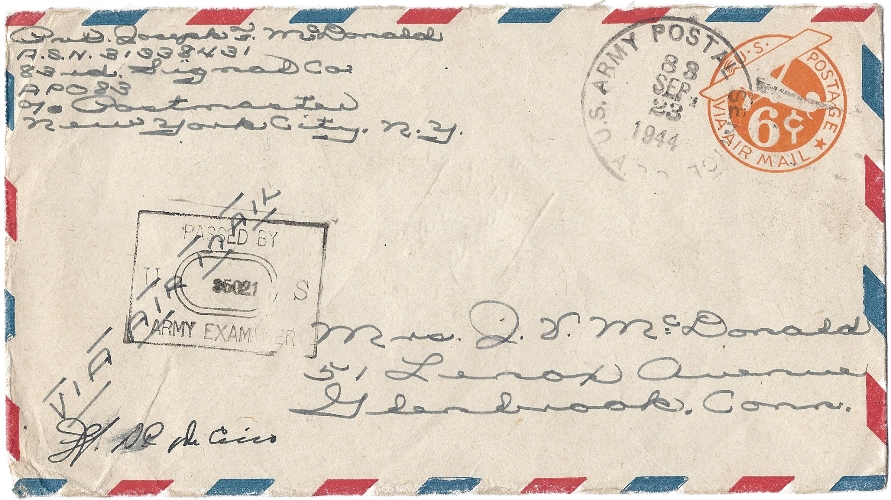 Pvt. Joseph F. McDonald
A.S.N. 31338431
83rd. Signal Co.
APO 83
c/o Postmaster
New York City, N.Y.
U.S. ARMY POSTAL
88
SEP
23
1944
U.S. POSTAGE
6¢
VIA AIR MAIL
VIA AIR MAIL
PASSED BY
U 35021 S
ARMY EXAMINER
Mrs. J. V. McDonald
51 Lenox Avenue
Glenbrook, Conn.